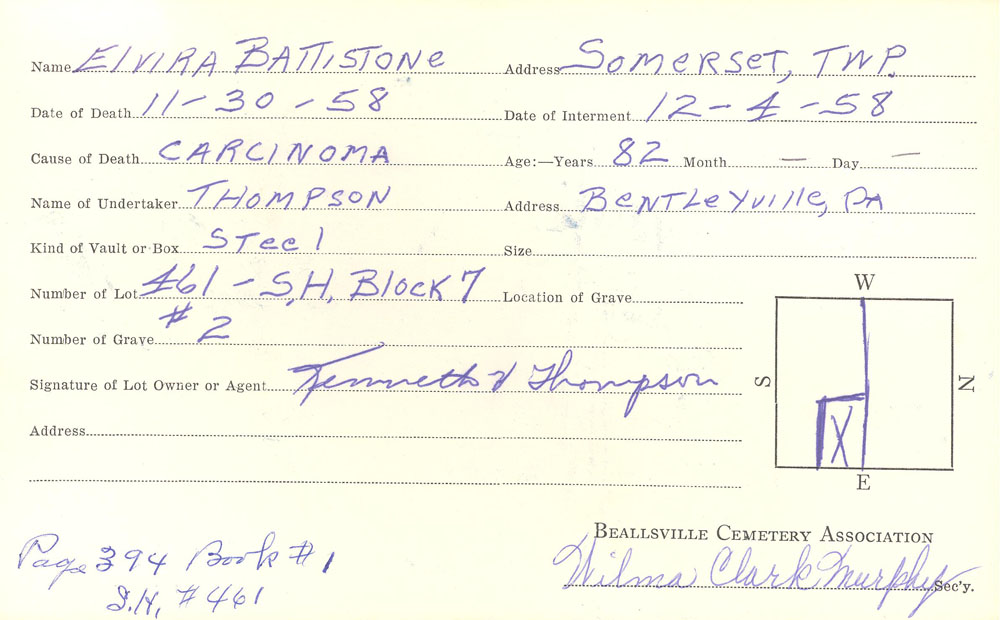 Name ELVIRA BATTISTONE Address SOMERSET, TWP.
Date of Death 11-30-58 Date of Interment 12-4-58
Cause of Death CARCINOMA Age:—Years 82 Month — Day —
Name of Undertaker THOMPSON Address BENTLEYVILLE, PA
Kind of Vault or Box STEEL Size
Number of Lot 461 - S.H. BLOCK 7 Location of Grave
Number of Grave #2
Signature of Lot Owner or Agent Kenneth V Thompson
Address
W
S
N
X
E
BEALLSVILLE CEMETERY ASSOCIATION
Wilma Clark Murphy Sec'y.
Page 394 Book #1
S.H. #461